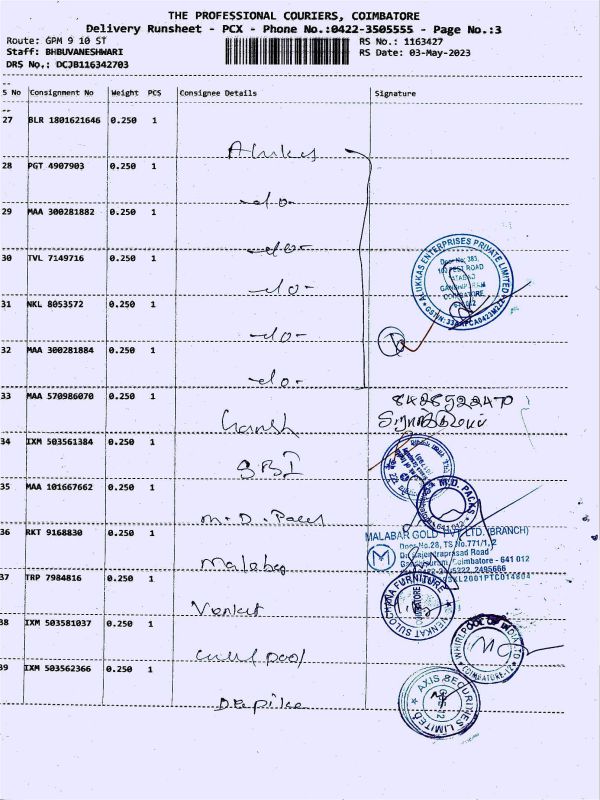 THE PROFESSIONAL COURIERS, COIMBATORE
Delivery Runsheet - PCX - Phone No.:0422-3505555 - Page No.:3
Route: GPM 9 10 ST
RS No.: 1163427
Staff: BHBUVANESHWARI
RS Date: 03-May-2023
DRS No.: DCJB116342703
S No Consignment No Weight PCS Consignee Details Signature
27 BLR 1801621646 0.250 1
Alukas
28 PGT 4907903 0.250 1
-do-
29 MAA 300281882 0.250 1
-do-
30 TVL 7149716 0.250 1
-do-
31 NKL 8053572 0.250 1
-do-
32 MAA 300281884 0.250 1
-do-
ALUKKAS ENTERPRISES PRIVATE LIMITED
Door No: 383,
100 FEET ROAD
COIMBATORE
33 MAA 570986070 0.250 1
Ganesh
8428922470
34 IXM 503561384 0.250 1
SBI
35 MAA 101667662 0.250 1
M.D. Packs
M.D. PACKS
641 012
36 RKT 9168830 0.250 1
Malabar
MALABAR GOLD PVT. LTD. (BRANCH)
Door No.28, TS No.771/1, 2
Coimbatore - 641 012
37 TRP 7984816 0.250 1
Venkat
VENKAT SULOCHANA FURNITURE
38 IXM 503581037 0.250 1
whirlpool
WHIRLPOOL OF INDIA LTD
COIMBATORE-12
39 IXM 503562366 0.250 1
Deepika
AXIS SECURITIES LIMITED